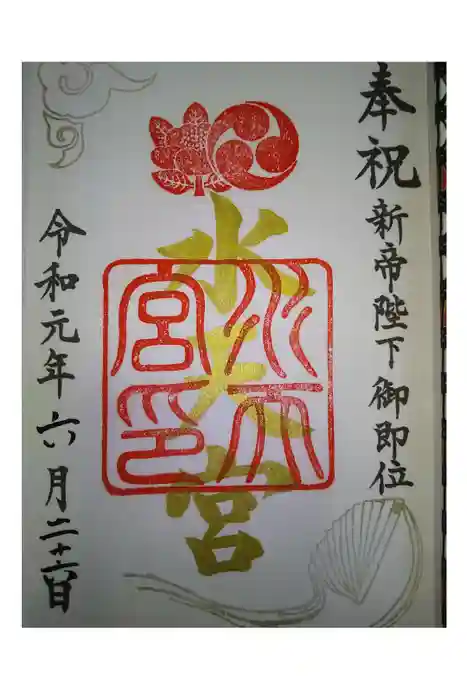 奉祝 新帝陛下御即位
水天宮
水天宮印
令和元年六月二十六日